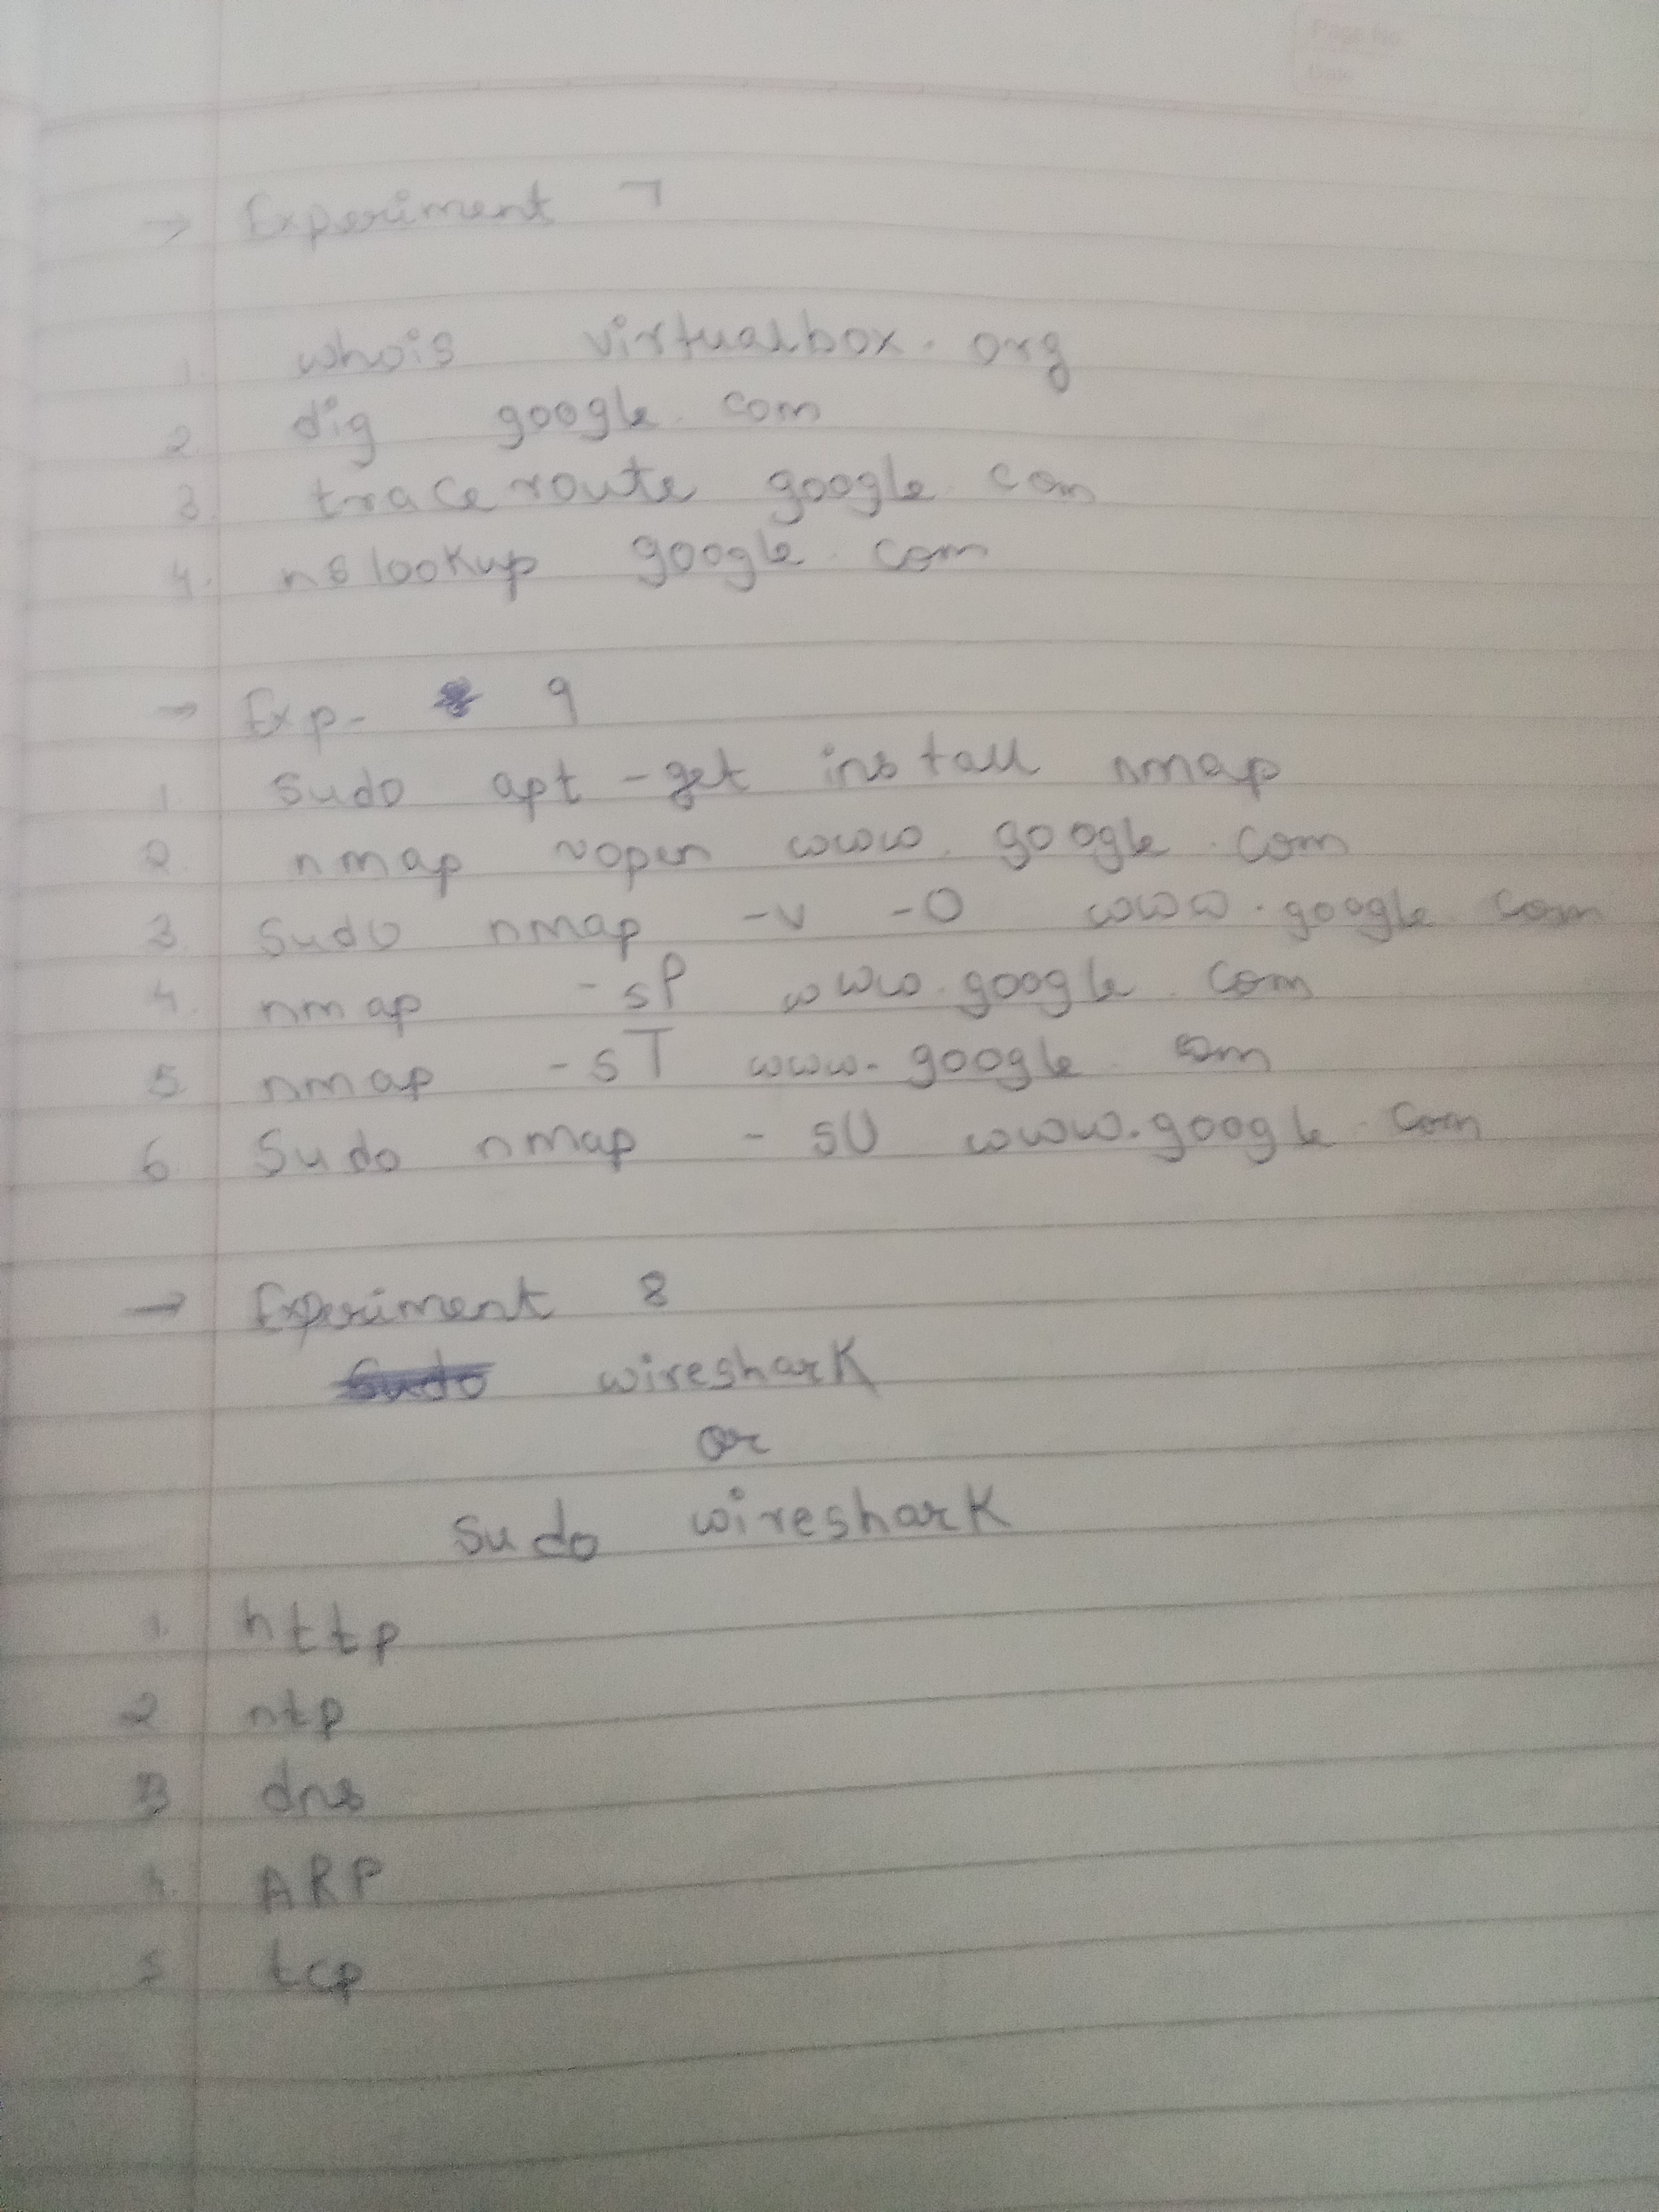 → Experiment 7
1. whois virtualbox.org
2. dig google.com
3. traceroute google.com
4. nslookup google.com
→ Exp- 9
1. sudo apt-get install nmap
2. nmap vopen www.google.com
3. sudo nmap -v -O www.google.com
4. nmap -sP www.google.com
5. nmap -sT www.google.com
6. Sudo nmap -sU www.google.com
→ Experiment 8
sudo wireshark
or
sudo wireshark
1. http
2 ntp
3 dns
4. ARP
5 tcp